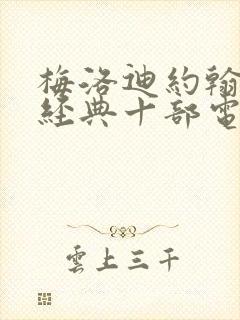 梅洛迪約翰
經典十部電
雲上三千